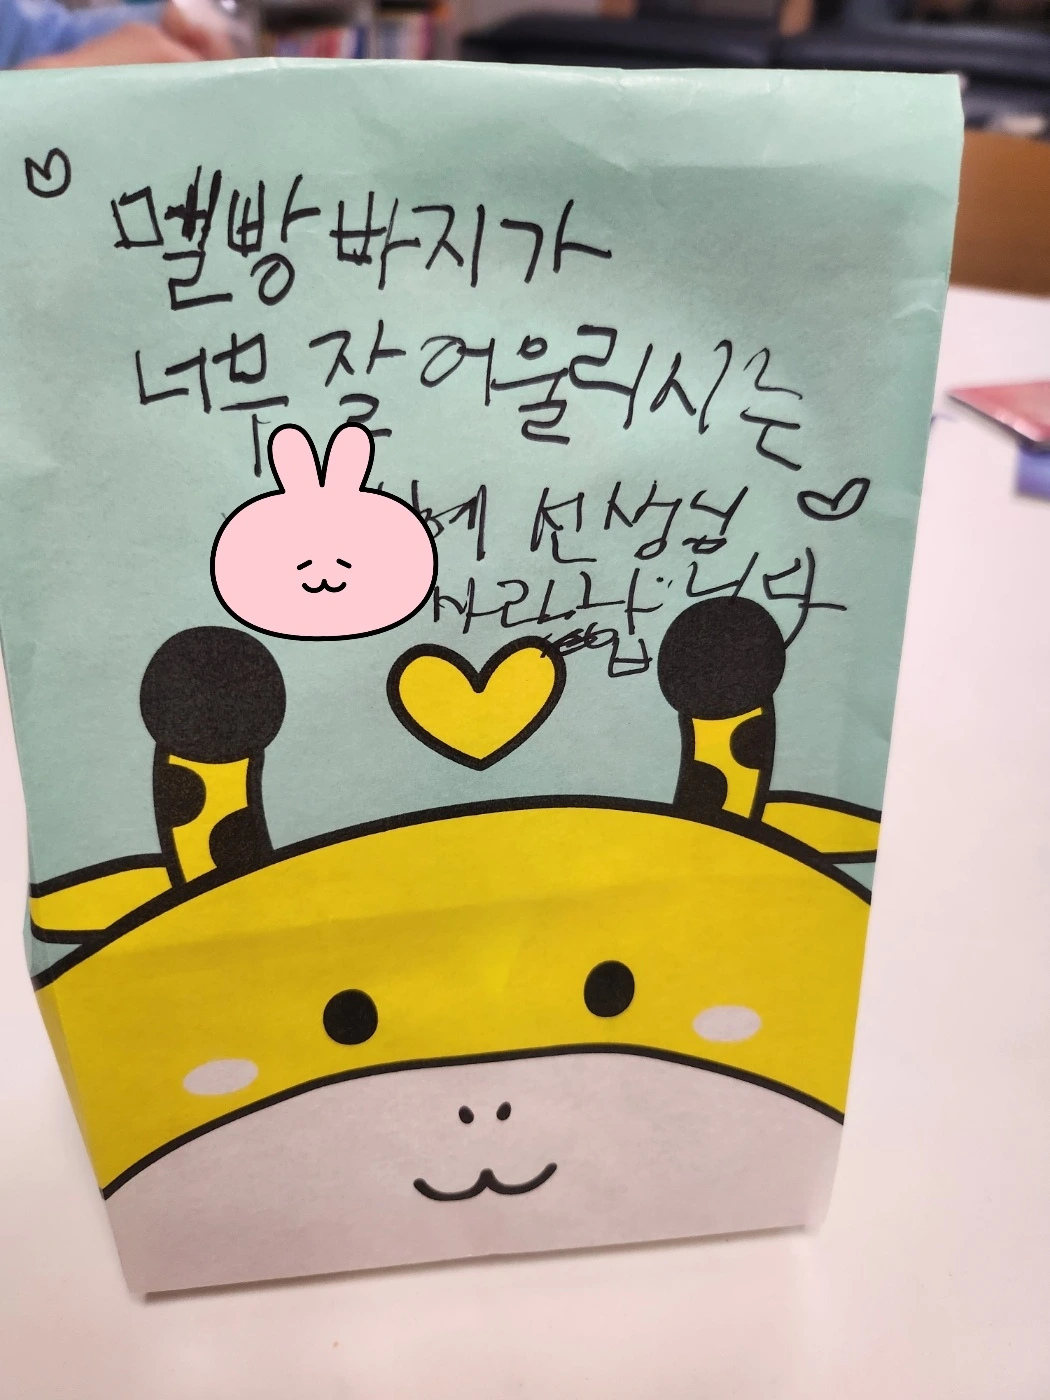 멜빵바지가
너무 잘 어울리시는
선생님
사랑합니다